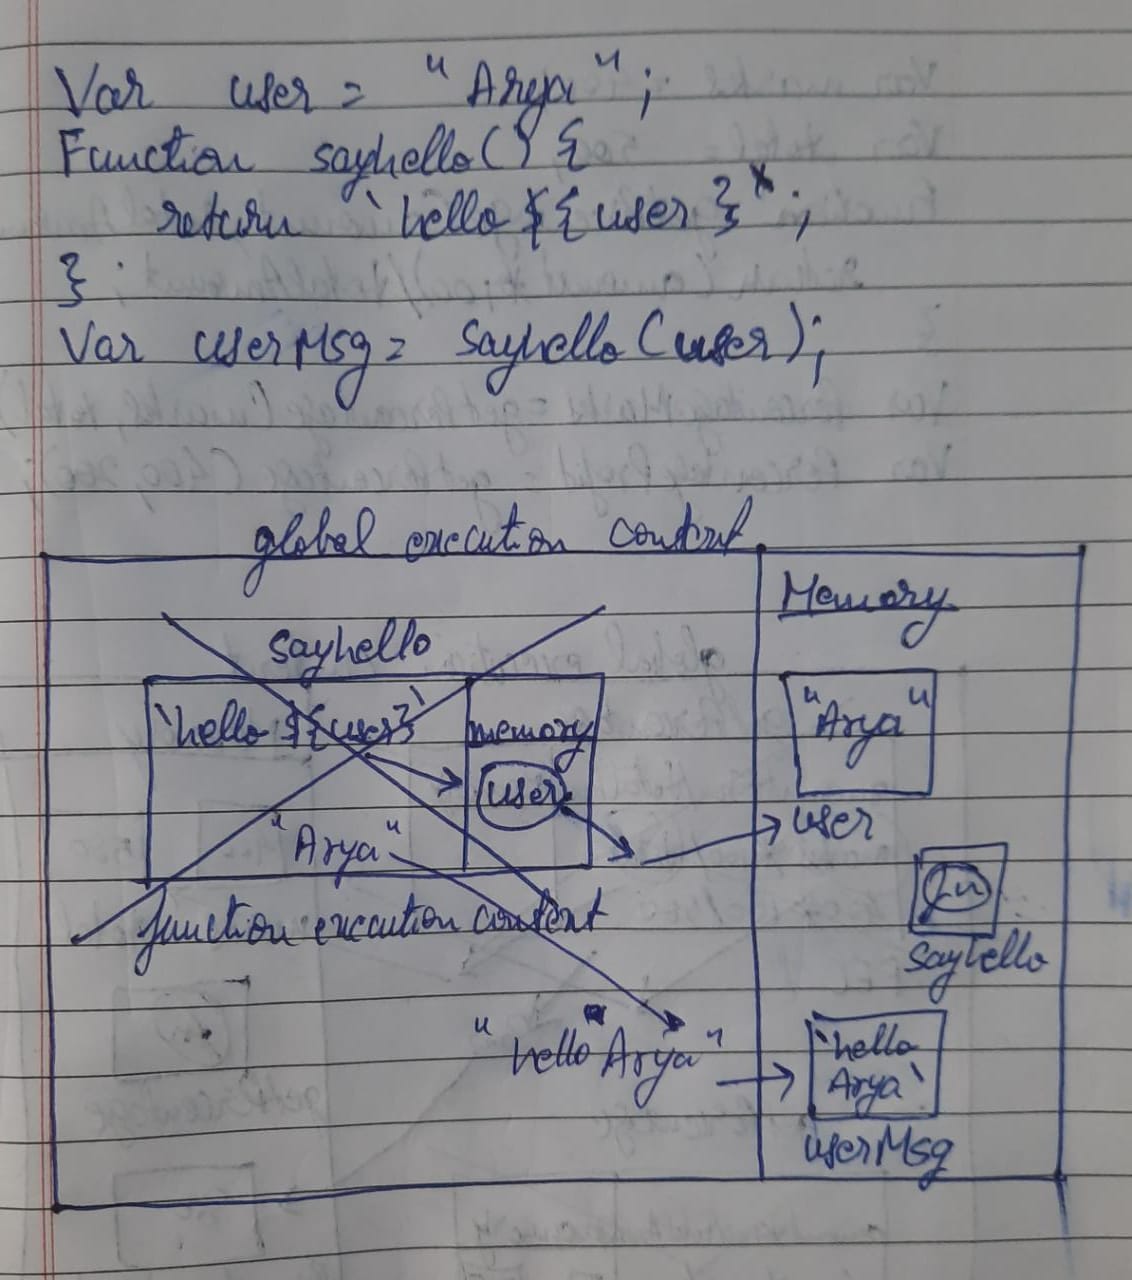 Var user = "Arya";
Function sayhello() {
return `hello ${user}`;
};
Var userMsg = Sayhello(user);
global execution context
Memory
sayhello
`hello ${user}`
memory
user
"Arya"
function execution context
"Arya"
user
fn
Sayhello
"hello Arya"
`hello
Arya`
userMsg